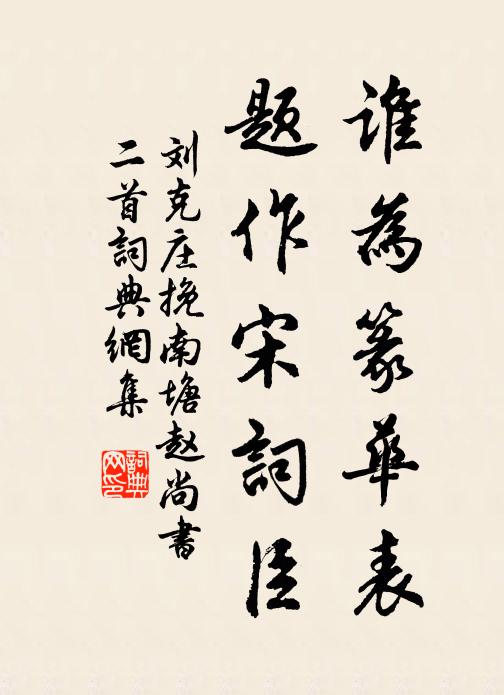 誰為篆華表
題作宋詞臣
刘克庄挽南塘赵尚書
二首詞典網集
詞典
网印